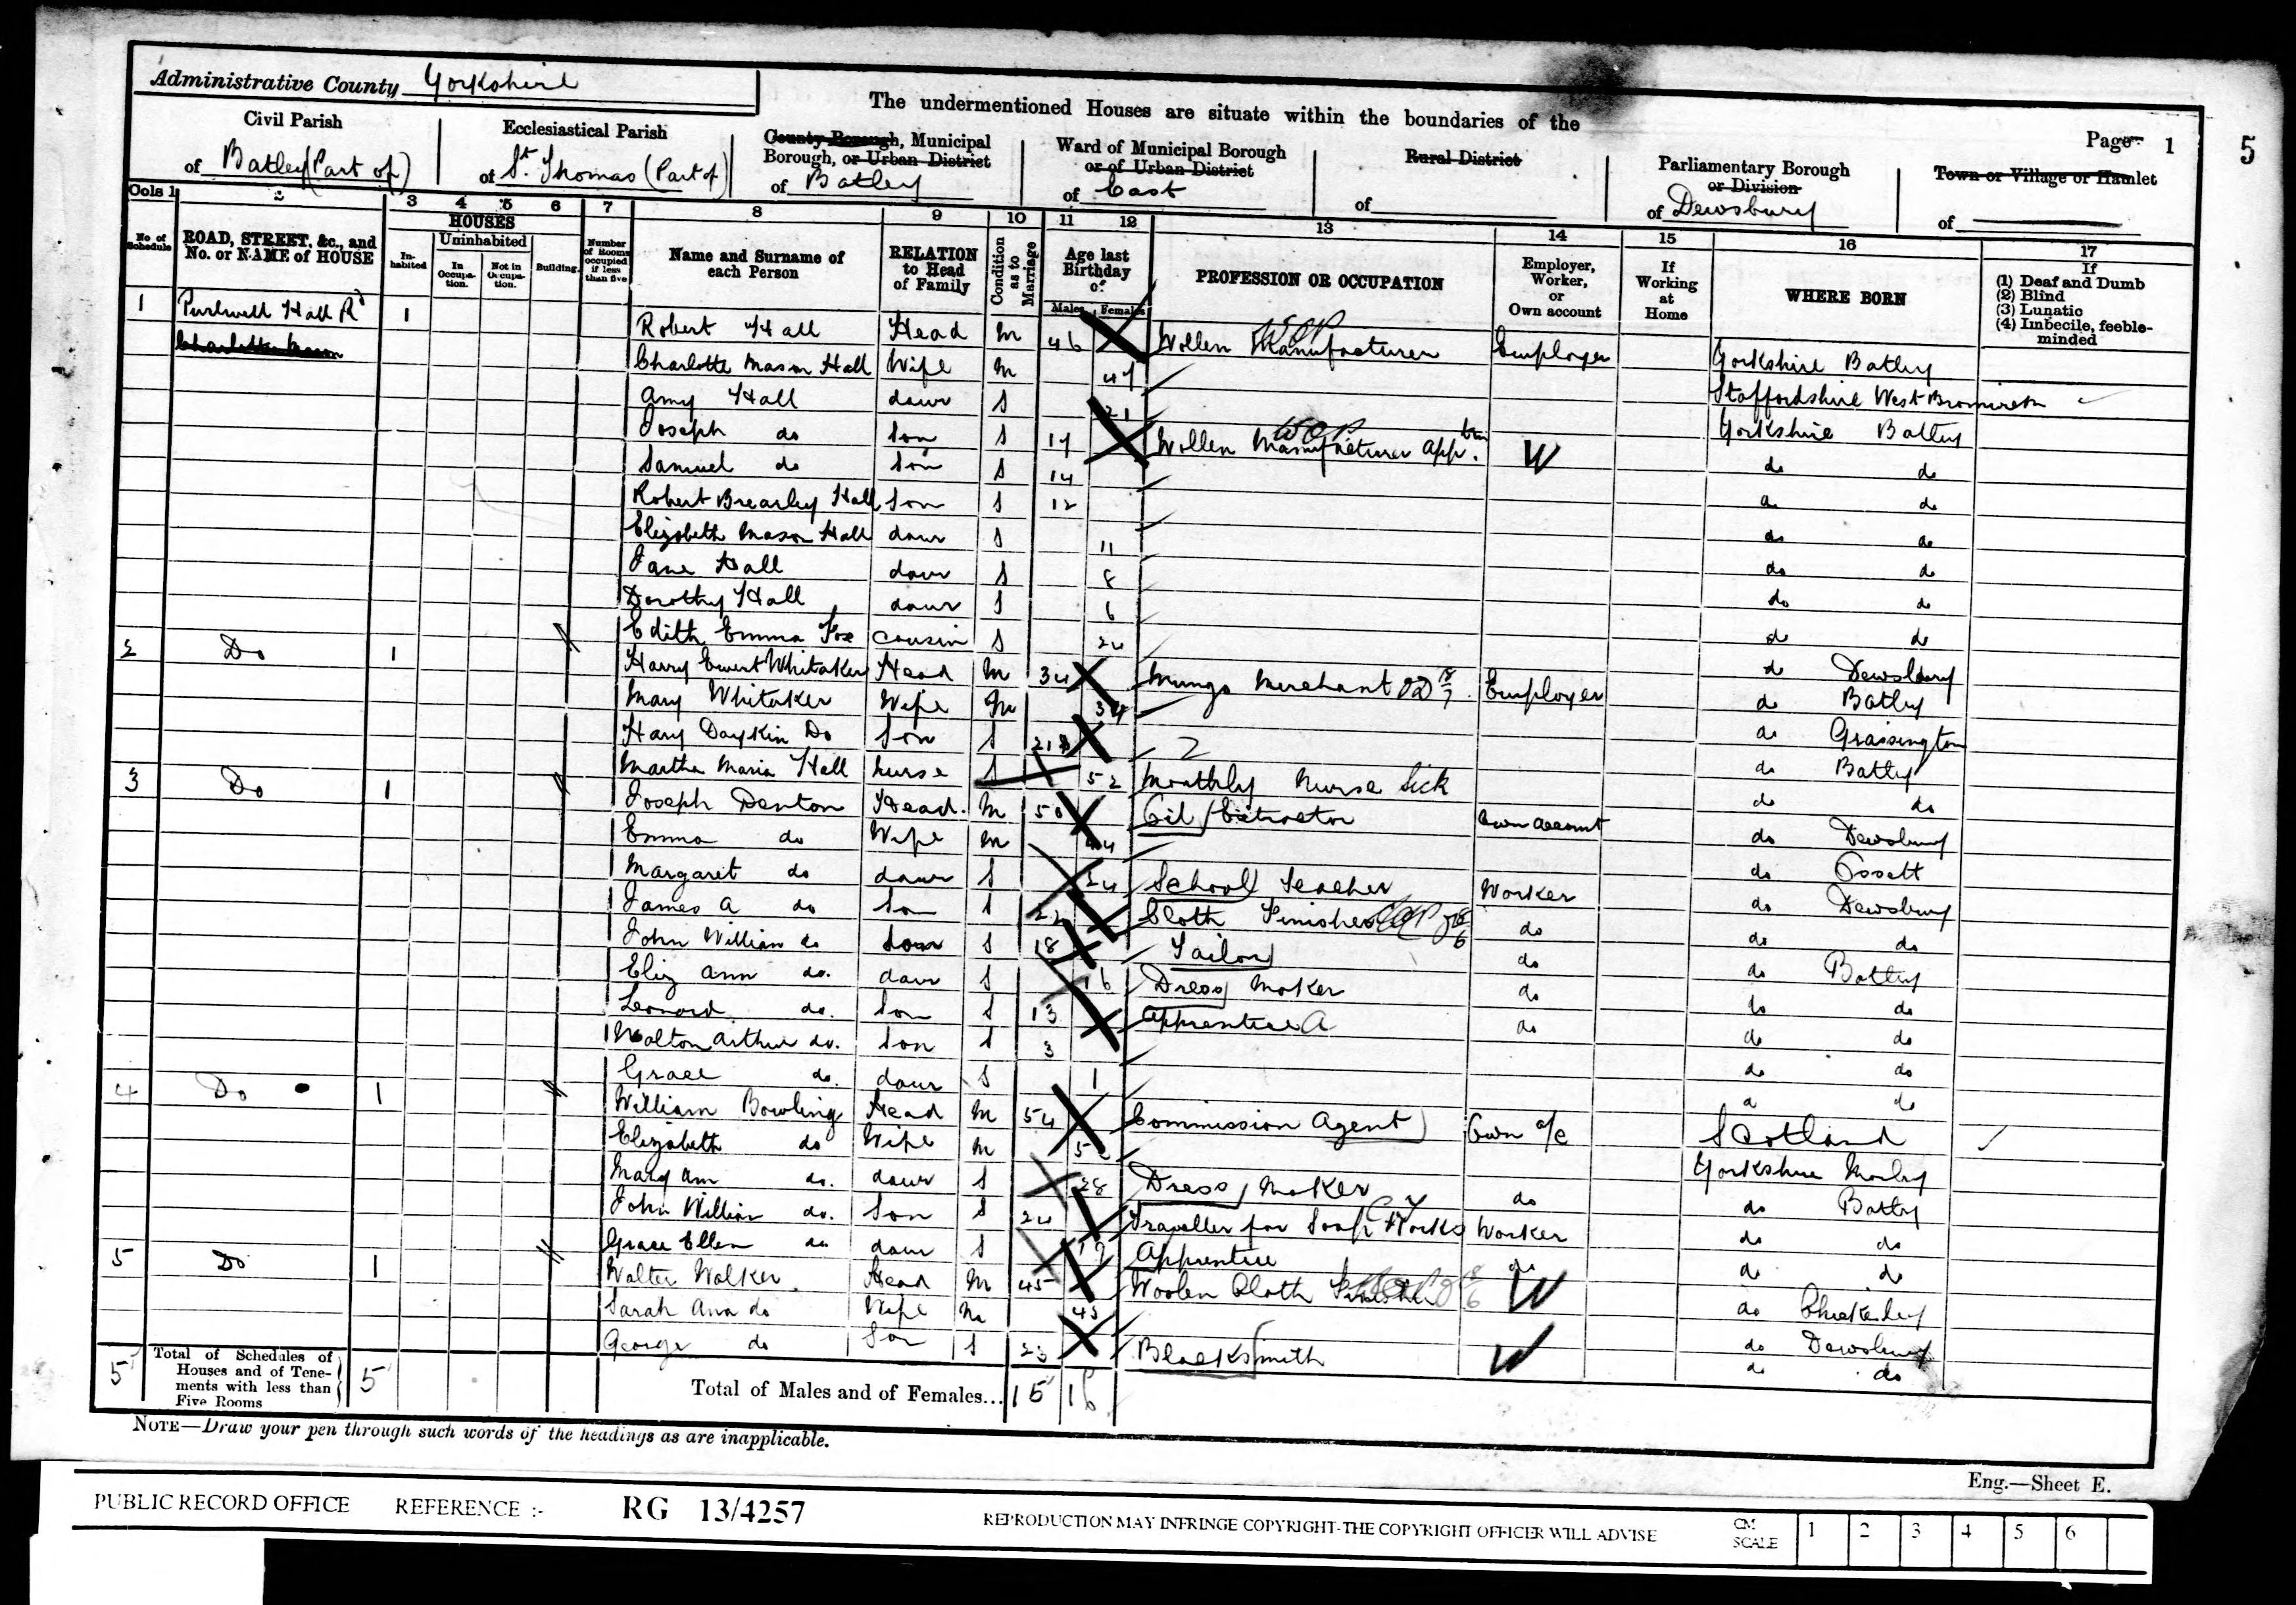 Administrative County Yorkshire
The undermentioned Houses are situate within the boundaries of the
Page 1
5
Civil Parish of Batley (Part of)
Ecclesiastical Parish of St. Thomas (Part of)
County Borough, Municipal Borough, or Urban District of Batley
Ward of Municipal Borough or of Urban District of East
Rural District of
Parliamentary Borough or Division of Dewsbury
Town or Village or Hamlet of
Cols 1 2 3 4 5 6 7 8 9 10 11 12 13 14 15 16 17
No of Schedule
ROAD, STREET, &c., and No. or NAME of HOUSE
HOUSES
Inhabited
Uninhabited
In Occupation.
Not in Occupation.
Building.
Number of Rooms occupied if less than five
Name and Surname of each Person
RELATION to Head of Family
Condition as to Marriage
Age last Birthday of
Males Females
PROFESSION OR OCCUPATION
Employer, Worker, or Own account
If Working at Home
WHERE BORN
If (1) Deaf and Dumb (2) Blind (3) Lunatic (4) Imbecile, feeble-minded
1 Purlwell Hall Rd 1 Robert Hall Head M 46 Wollen Manufacturer Employer Yorkshire Batley
Charlotte Mason Hall Wife M 47 Staffordshire West Bromwich
Amy Hall daur S 21 Yorkshire Batley
Joseph do Son S 17 Wollen Manufacturer App. W do do
Samuel do Son S 14 do do
Robert Brearley Hall Son S 12 do do
Elizabeth Mason Hall daur S 11 do do
Jane Hall daur S 8 do do
Dorothy Hall daur S 6 do do
Edith Emma Fox cousin S 24 do Dewsbury
2 Do 1 Harry Ewert Whitaker Head M 34 Mungo Merchant Employer do Batley
Mary Whitaker Wife M 34 do Grassington
Harry Daykin Do Son S do Batley
Martha Maria Hall nurse S 52 Monthly Nurse Sick do do
3 Do 1 Joseph Denton Head M 50 Oil Extractor Own Account do Dewsbury
Emma do Wife M 44 do Ossett
Margaret do daur S 24 School Teacher Worker do Dewsbury
James A do Son S 22 Cloth Finisher do do do
John William do Son S 18 Tailor do do Batley
Eliz Ann do. daur S 16 Dress Maker do do do
Leonard do. Son S 13 Apprentice A do do do
Walton Arthur do. Son S 3 do do
Grace do. daur S 1 do do
4 Do 1 William Bowling Head M 54 Commission Agent Own a/c Scotland
Elizabeth do Wife M Yorkshire Morley
Mary Ann do. daur S 28 Dress Maker do do Batley
John William do. Son S 24 Traveller for Soap Works Worker do do
Grace Ellen do daur S 19 Apprentice do do do
5 Do 1 Walter Walker Head M 45 Woolen Cloth Finisher W do Chickenley
Sarah Ann do Wife M 43 do Dewsbury
George do Son S 23 Blacksmith W do do
5 Total of Schedules of Houses and of Tenements with less than Five Rooms 5
Total of Males and of Females... 15 16
NOTE—Draw your pen through such words of the headings as are inapplicable.
Eng.—Sheet E.
PUBLIC RECORD OFFICE REFERENCE :- RG 13/4257
REPRODUCTION MAY INFRINGE COPYRIGHT-THE COPYRIGHT OFFICER WILL ADVISE
CM SCALE 1 2 3 4 5 6